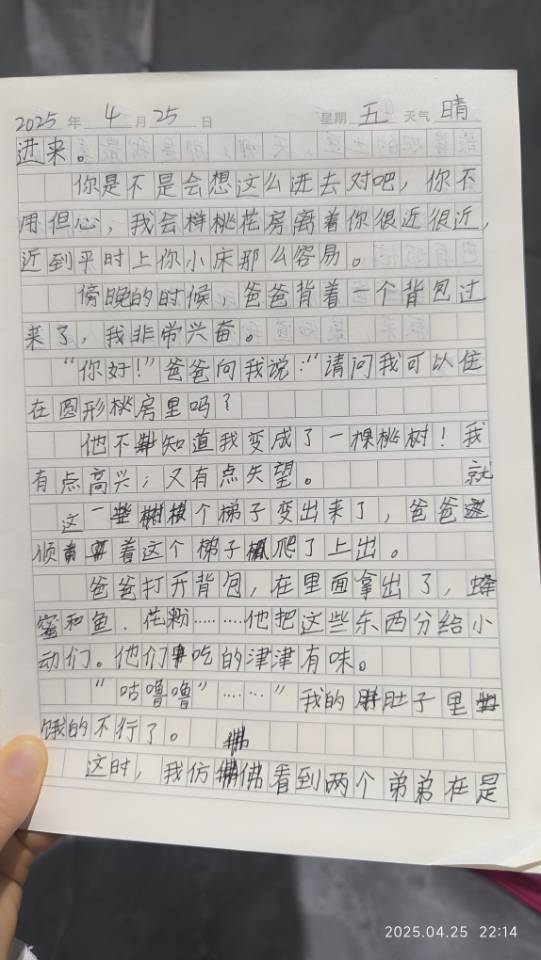 2025 年 4 月 25 日 星期 五 天气 晴
进来。
你是不是会想这么进去对吧，你不
用但心，我会样桃花房离着你很近很近，
近到平时上你小床那么容易。
傍晚的时候，爸爸背着一个背包过
来了，我非常兴奋。
“你好！”爸爸问我说：“请问我可以住
在圆形桃房里吗？
他不知道我变成了一棵桃树！我
有点高兴；又有点失望。 就
这一个梯子变出来了，爸爸
顺着这个梯子爬了上出。
爸爸打开背包，在里面拿出了，蜂
蜜和鱼、花粉……他把这些东西分给小
动们。他们吃的津津有味。
“咕噜噜”……”我的肚子里
饿的不行了。
这时，我仿佛看到两个弟弟在是
2025.04.25 22:14